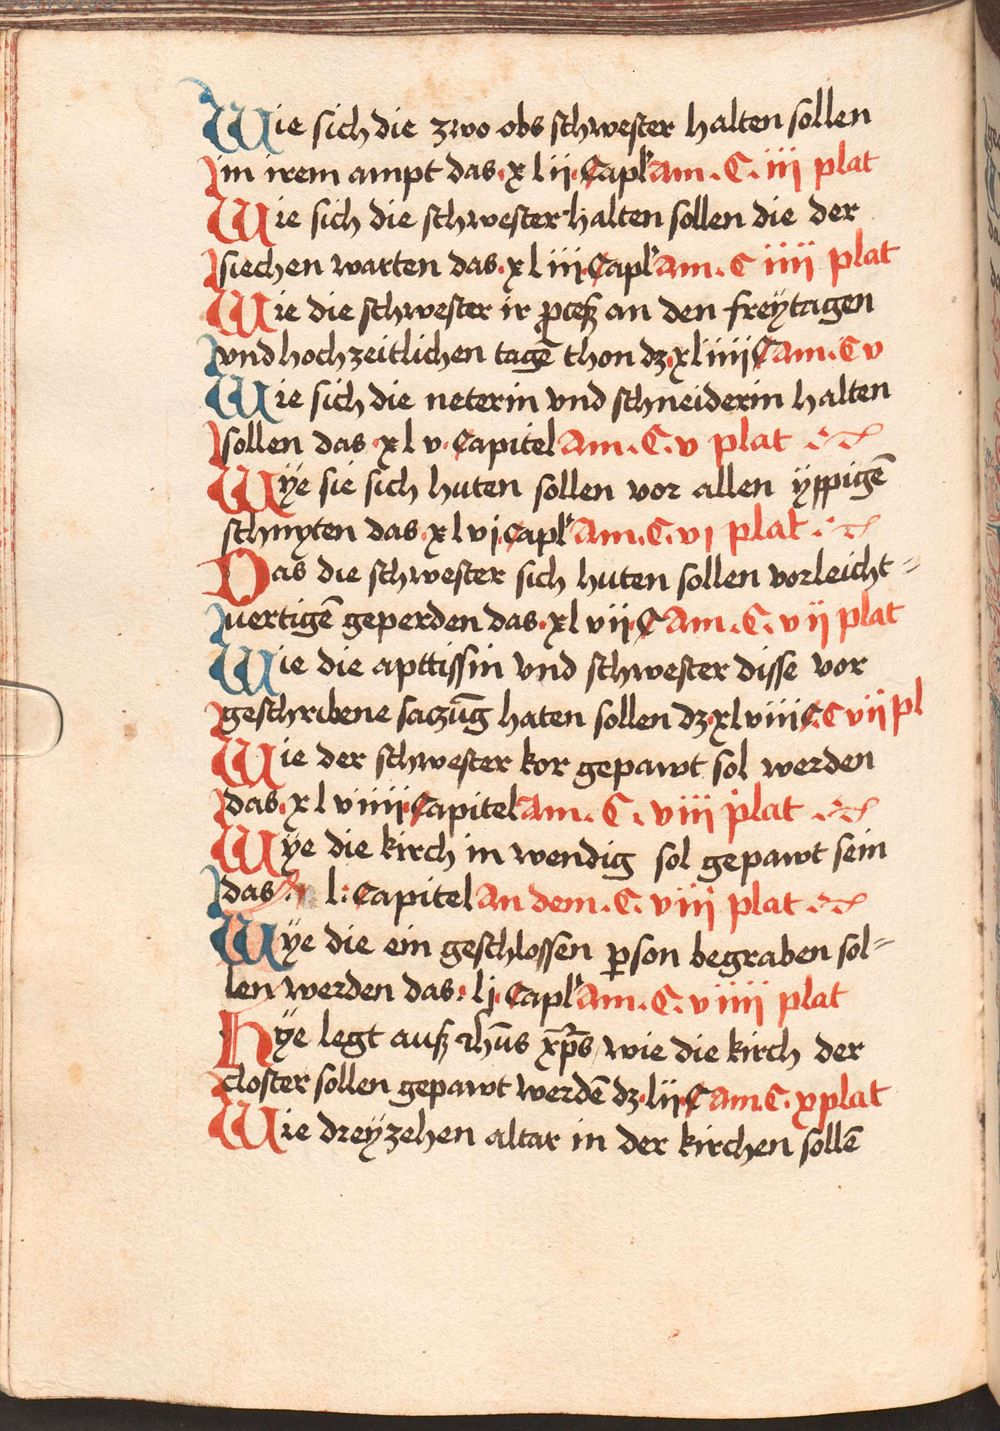 Wie sich die zwo obs schwester halten sollen
in irem ampt das · x l ii · Capl' Am · C · iii plat
Wie sich die schwester halten sollen die der
siechen warten das · x l iii · Capl' Am · C iiii plat
Wie die schwester ir ꝓceß an den freÿtagen
vnd hochzeitlichen tagē thon dz · xl iiii C Am · C v
Wie sich die neterin vnd schneiderin halten
sollen das · x l v · Capitel Am · C · v plat
Wÿe sie sich huten sollen vor allen ÿppigē
schnyten das · x l vj · Capl' Am · C · vi plat
Das die schwester sich huten sollen vor leicht=
uertigē geperden das · xl vii · C Am · C · v ij plat
Wie die apttissin vnd schwester disse vor
geschribene saczūg haten sollen dz · xl viii C · C vii pl
Wie der schwester kor gepawt sol werden
das · x l viiii · Capitel Am · C · viii plat
Wÿe die kirch in wendig sol gepawt sein
das l : Capitel An dem · C · viii plat
Wÿe die ein geschlossen ꝑson begraben sol=
len werden das · lj · Capl' Am · C · viiii plat
Hÿe legt auß Jhūs xp̄s wie die kirch der
closter sollen gepawt werdē dz · lij · C Am · C · x plat
Wie dreÿzehen altar in der kirchen sollē